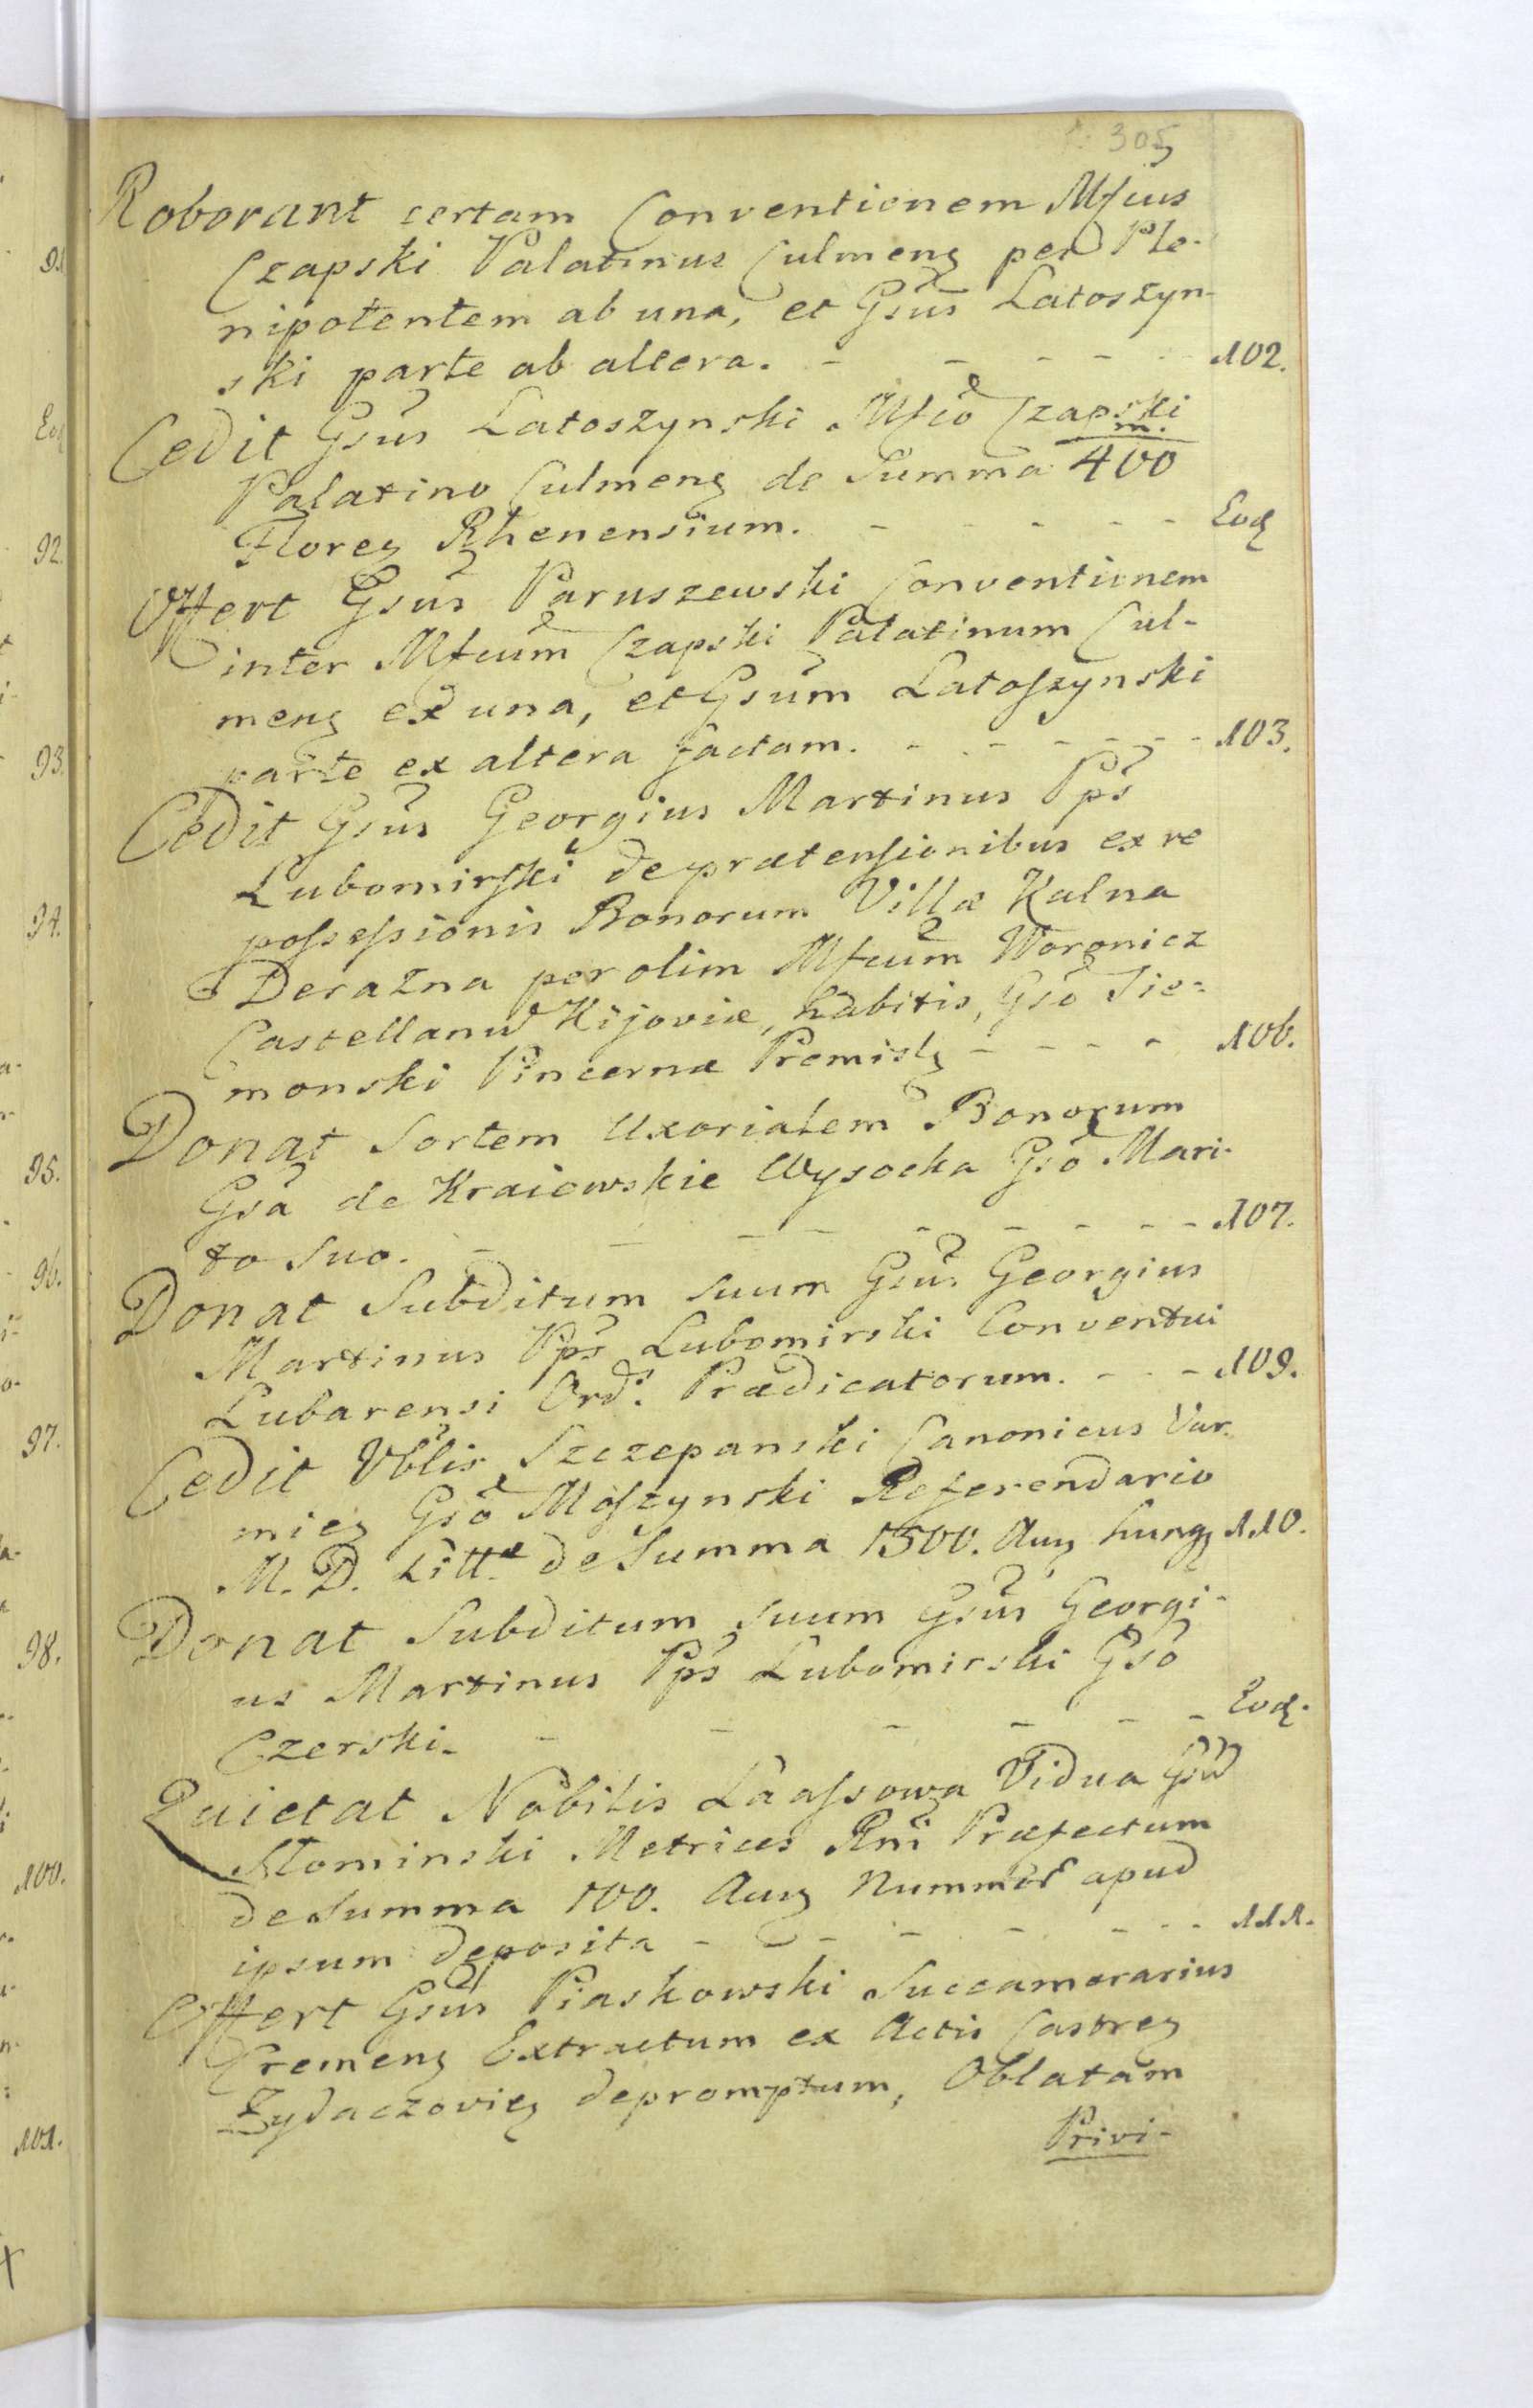 305
Roborant certam Conventionem Mfcus
Czapski Palatinus Culmens per Ple-
nipotentem ab una, et Gsus Latoszyn-
ski parte ab altera. - - - - - 102.
Cedit Gsus Latoszynski Mfco Czapski
Palatino Culmens de Summa 400 m.
Floren Rhenensium. - - - - - Eod
Offert Gsus Paruszewski Conventionem
inter Mfcum Czapski Palatinum Cul-
mens ex una, et Gsum Latoszynski
parte ex altera factam. - - - - - 103.
Cedit Gsus Georgius Martinus Pps
Lubomirski de prætensionibus ex re
possessionis Bonorum Villæ Kalna
Derazna per olim Mfcum Woronicz
Castellanum Kijoviæ, habitis, Gso Sie-
monski Pincernæ Premisls - - - - 106.
Donat Sortem Uxorialem Bonorum
Gsa de Kraiewskie Wysocka Gso Mari-
to suo. - - - - - - - 107.
Donat Subditum suum Gsus Georgius
Martinus Pps Lubomirski Conventui
Lubarensi Ord: Prædicatorum. - - - 109.
Cedit Vblis Szczepanski Canonicus Var-
mien Gso Moszynski Referendario
M. D. Litt. de Summa 1500. Aur hung 110.
Donat Subditum suum Gsus Georgi-
us Martinus Pps Lubomirski Gso
Czerski. - - - - - - Eod.
Quietat Nobilis Laassowa Vidua Gsum
Słominski Metrices Rni Præfectum
de Summa 100. Aur Nummor apud
ipsum deposita - - - - - - 111.
Offert Gsus Piaskowski Succamerarius
Cremens Extractum ex Actis Castren
Zydaczovien depromptum, Oblatam
Privi-
91
Eod
92.
93.
94.
95.
96.
97.
98.
100.
101.